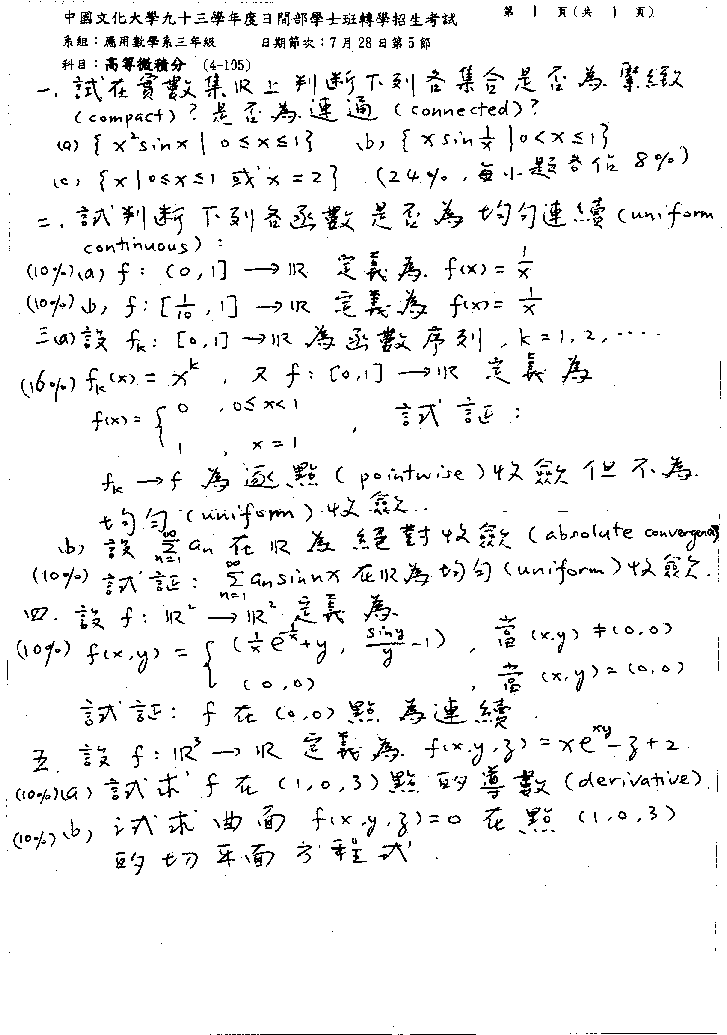 中國文化大學九十三學年度日間部學士班轉學招生考試 第 1 頁(共 1 頁)
系組：應用數學系三年級 日期節次：7月28日第5節
科目：高等微積分 (4-105)
一. 試在實數集 ℝ 上判斷下列各集合是否為緊緻
(compact)? 是否為連通 (connected)?
(a) { x²sinx | 0≤x≤1} (b) { x sin 1/x | 0<x≤1}
(c) {x | 0≤x≤1 或 x=2} (24%, 每小題各佔 8%)
二. 試判斷下列各函數是否為均勻連續 (uniform
continuous):
(10%) (a) f: (0,1] → ℝ 定義為 f(x) = 1/x
(10%) (b) f: [1/10, 1] → ℝ 定義為 f(x) = 1/x
三(a) 設 f_k: [0,1] → ℝ 為函數序列, k=1,2,....
(16%) f_k(x) = x^k, 又 f: [0,1] → ℝ 定義為
f(x) = { 0 , 0≤x<1
1 , x=1 , 試証:
f_k → f 為逐點 (pointwise) 收斂但不為
均勻 (uniform) 收斂.
(b) 設 ∑_{n=1}^∞ a_n 在 ℝ 為絕對收斂 (absolute convergence)
(10%) 試証: ∑_{n=1}^∞ a_n sin nx 在 ℝ 為均勻 (uniform) 收斂.
四. 設 f: ℝ² → ℝ² 定義為
(10%) f(x,y) = { (1/x e^{-1/x}+y, siny/y -1) , 當 (x,y) ≠ (0,0)
(0,0) , 當 (x,y) = (0,0)
試証: f 在 (0,0) 點為連續.
五. 設 f: ℝ³ → ℝ 定義為 f(x,y,z) = xe^{xy} - z + 2
(10%) (a) 試求 f 在 (1,0,3) 點的導數 (derivative).
(10%) (b) 試求曲面 f(x,y,z)=0 在點 (1,0,3)
的切平面方程式.